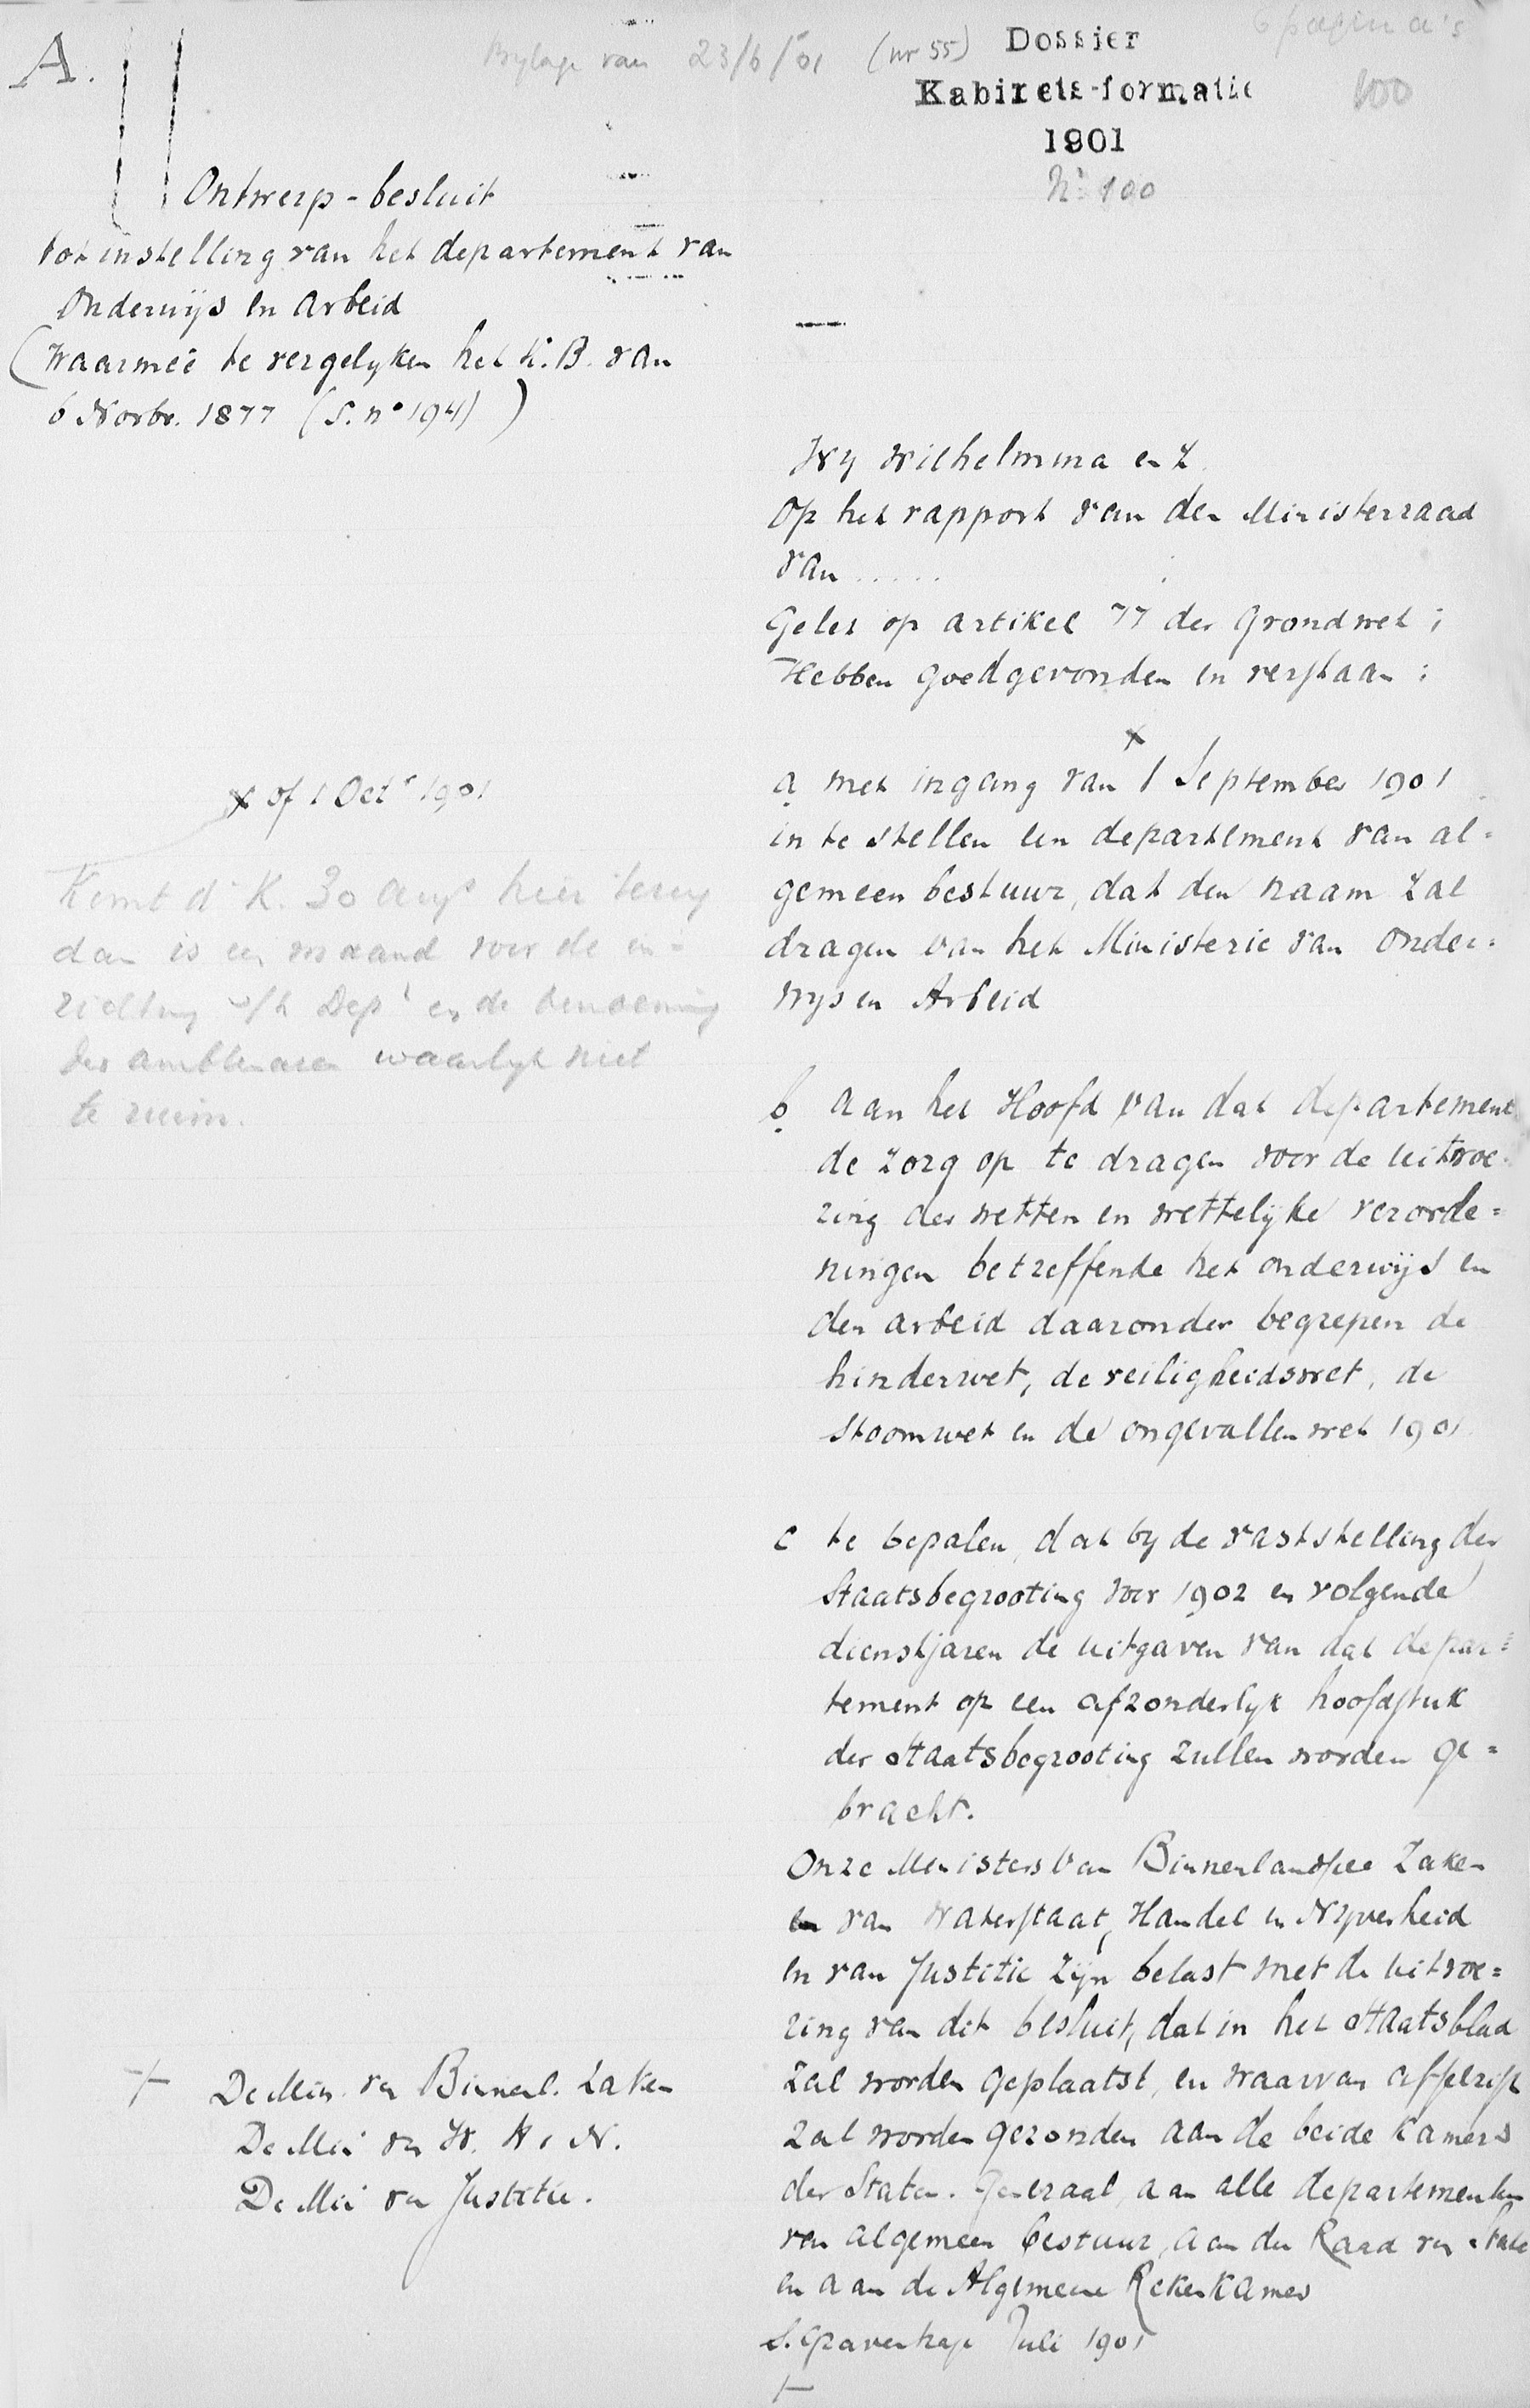 A.
Bylage van 23/6/01 (nr 55)
Dossier
Kabinets-formatie
1901
No 100
6 pagina's
100
Ontwerp-besluit
tot instelling van het departement van
Onderwijs en Arbeid
(waarmeê te vergelyken het K.B. van
6 Novbr. 1877 (S. no 194) )
Wy Wilhelmina enz.
Op het rapport van den Ministerraad
van .....
Gelet op artikel 77 der Grondwet;
Hebben goedgevonden en verstaan:
x
a met ingang van 1 September 1901
in te stellen een departement van al=
gemeen bestuur, dat den naam zal
dragen van het Ministerie van Onder=
wys en Arbeid
b aan het Hoofd van dat departement
de zorg op te dragen voor de uitvoe=
ring der wetten en wettelyke verorde=
ningen betreffende het onderwijs en
den arbeid daaronder begrepen de
hinderwet, de veiligheidswet, de
stoomwet en de ongevallenwet 1901
c te bepalen, dat by de vaststelling der
Staatsbegrooting voor 1902 en volgende
dienstjaren de uitgaven van dat depar=
tement op een afzonderlyk hoofdstuk
der Staatsbegrooting zullen worden ge=
bracht.
Onze Ministers van Binnenlandsche Zaken
en van Waterstaat, Handel en Nyverheid
en van Justitie zijn belast met de uitvoe=
ring van dit besluit, dat in het Staatsblad
zal worden geplaatst, en waarvan afschrift
zal worden gezonden aan de beide Kamers
der Staten-Generaal, aan alle departementen
van algemeen bestuur, aan den Raad van State
en aan de Algemeene Rekenkamer
s.Gravenhage Juli 1901
+
x of 1 Octr 1901
Komt d K. 30 Augs hier terug
dan is een maand voor de in=
richting v/h Dept en de benoeming
der ambtenaren waarlyk niet
te ruim.
+ De Min. van Binnenl. Zaken
De Min van W. H. N.
De Min van Justitie.